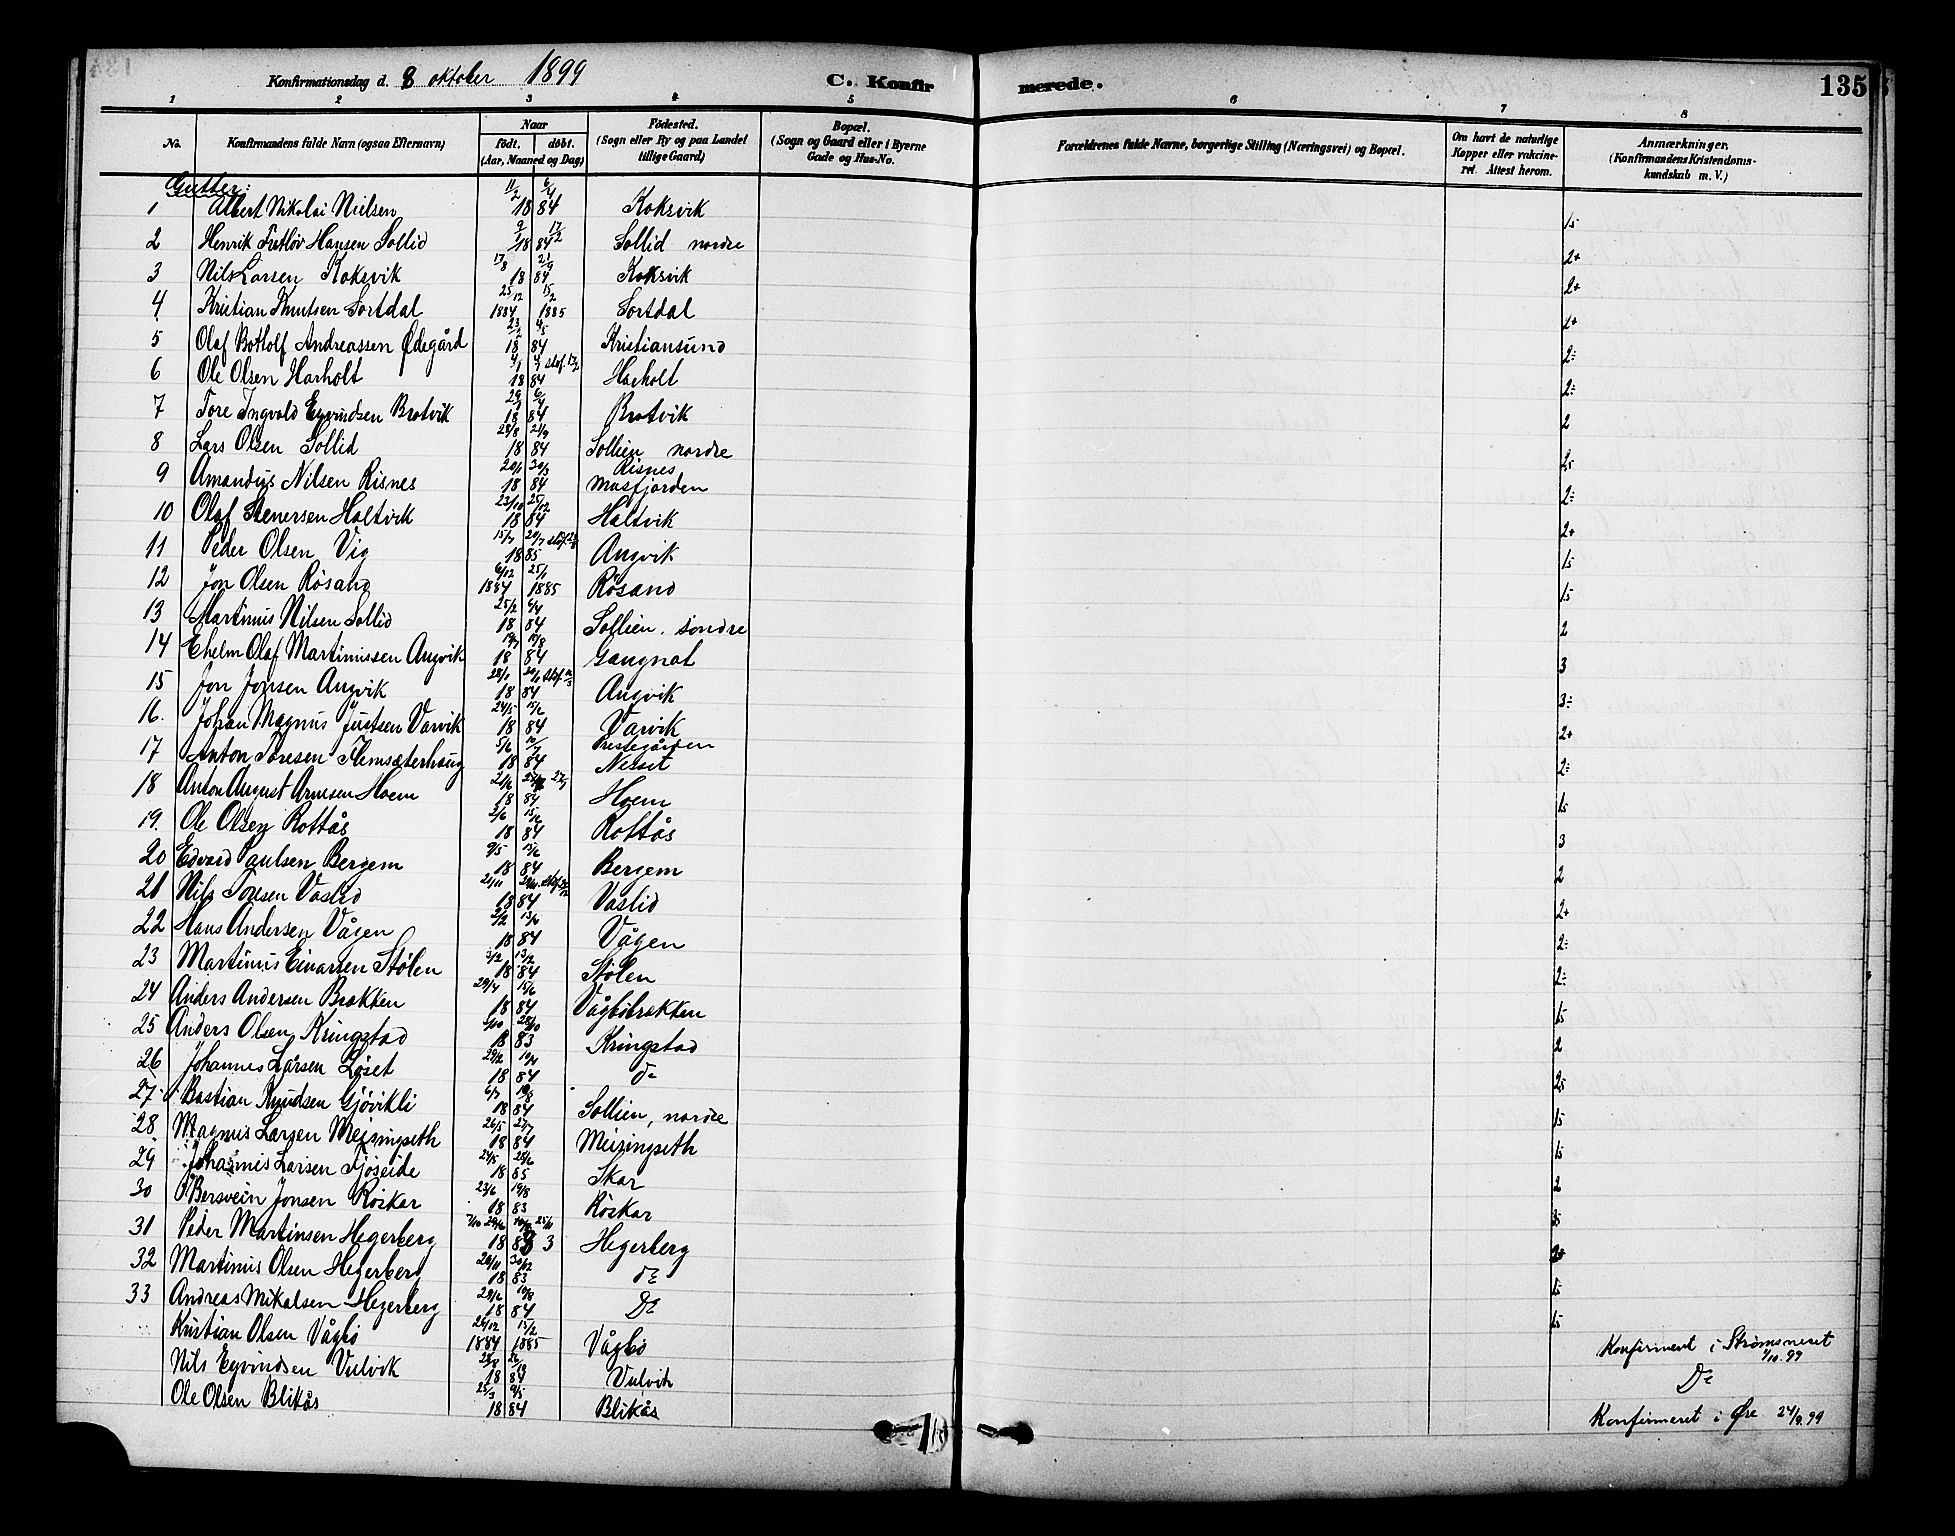 Konfirmationsdag d. 8 oktober 1899 C. Konfirmerede. 135
1 2 3 4 5 6 7 8
No. Konfirmandens fulde Navn (ogsaa Efternavn) Naar født. døbt. (Aar, Maaned og Dag) Fødested. (Sogn eller By og paa Landet tillige Gaard) Bopæl. (Sogn og Gaard eller i Byerne Gade og Hus-No. Forældrenes fulde Navne, borgerlige Stilling (Næringsvei) og Bopæl. Om havt de naturlige Kopper eller vakcineret. Attest herom. Anmærkninger. (Konfirmandens Kristendomskundskab m. V.)
Gutter:
1 Albert Nikolai Nielsen 11/2 6/4 1884 Koksvik 1,5
2 Henrik Hansen Sollid 1884 Sollid nordre 2+
3 Nils Larsen Koksvik 17/8 21/9 1884 Koksvik 2+
4 Kristian Knutsen Sortdal 25/12 1884 15/2 1885 Sortdal 2+
5 Olaf Botlolf Andreassen Ødegård 1884 Kristiansund 2÷
6 Ole Olsen Harholt 1884 Harholt 2÷
7 Tore Ingvald Eyvindsen Brotvik 1884 Brotvik 2
8 Lars Olsen Sollid 28/8 21/9 1884 Sollien nordre 2,5
9 Amandus Nilsen Risnes 20/1 30/3 1884 Risnes Masfjorden 2÷
10 Olaf Stenersen Holtvik 23/10 25/12 1884 Holtvik 2+
11 Peder Olsen Vig 1885 Angvik 1,5
12 Jon Olsen Røsand 6/12 1884 25/1 1885 Røsand 1,5
13 Martinus Nilsen Sollid 25/2 6/4 1884 Sollien. søndre 2
14 Ehelm Olaf Martinussen Angvik 1884 Gangnat 3
15 Jon Jonsen Angvik 1884 Angvik 3÷
16. Johan Magnus Justsen Varvik 24/5 15/6 1884 Varvik 2+
17 Anton Toresen Flemsæterhaug 5/6 1884 Prestegården Nesset 2÷
18 Anton August Arnesen Hoem 1884 Hoem 1,5
19. Ole Olsen Rottås 2/6 15/6 1884 Rottås 3
20 Edvard Paulsen Bergem 9/5 15/6 1884 Bergem 2
21 Nils Tonsen Vaslid 1884 Vaslid 2+
22 Hans Andersen Vågen 1884 Vågen 2÷
23 Martinus Einarsen Stølen 1884 Stølen 2÷
24 Anders Andersen Brakken 29/4 15/6 1884 Vågbøbrakken 1,5
25 Anders Olsen Kringstad 1883 Kringstad 2
26 Johannes Larsen Løset 1884 do 2,5
27 Bastian Knudsen Gjøvikli 1884 Sollien, nordre 1,5
28 Magnus Larsen Meisingseth 26/5 27/7 1884 Meisingseth 1,5
29 Johannes Larsen Fjøseide 24/5 25/6 1885 Skar 2
30 Bersvein Jonsen Røskar 23/6 19/8 1883 Røskar
31 Peder Martinsen Hegerberg 1883 Hegerberg
32 Martinus Olsen Hegerberg 20/11 30/12 1883 do 1,5
33 Andreas Mikalsen Hegerberg 1884 Do 1,5
Kristian Olsen Vågbø 26/12 1884 15/2 1885 Vågbø Konfirmeret i Strømsneset 1/10. 99
Nils Eyvindsen Vulvik 1884 Vulvik Do
Ole Olsen Blikås 25/3 9/5 1884 Blikås Konfirmeret i Øre 24/9. 99